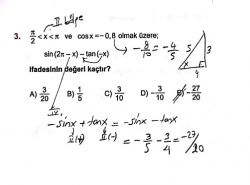 II. bölge
3. π/2 < x < π ve cosx = -0,8 olmak üzere; → -8/10 = -4/5
5 3
4
sin(2π - x) - tan(-x)
IV
ifadesinin değeri kaçtır?
A) 3/20 B) 1/5 C) 3/10 D) -3/10 E) -27/20
-sinx + tanx = -sinx - tanx
II (+) II (-) = -3/5 - 3/4 = -27/20